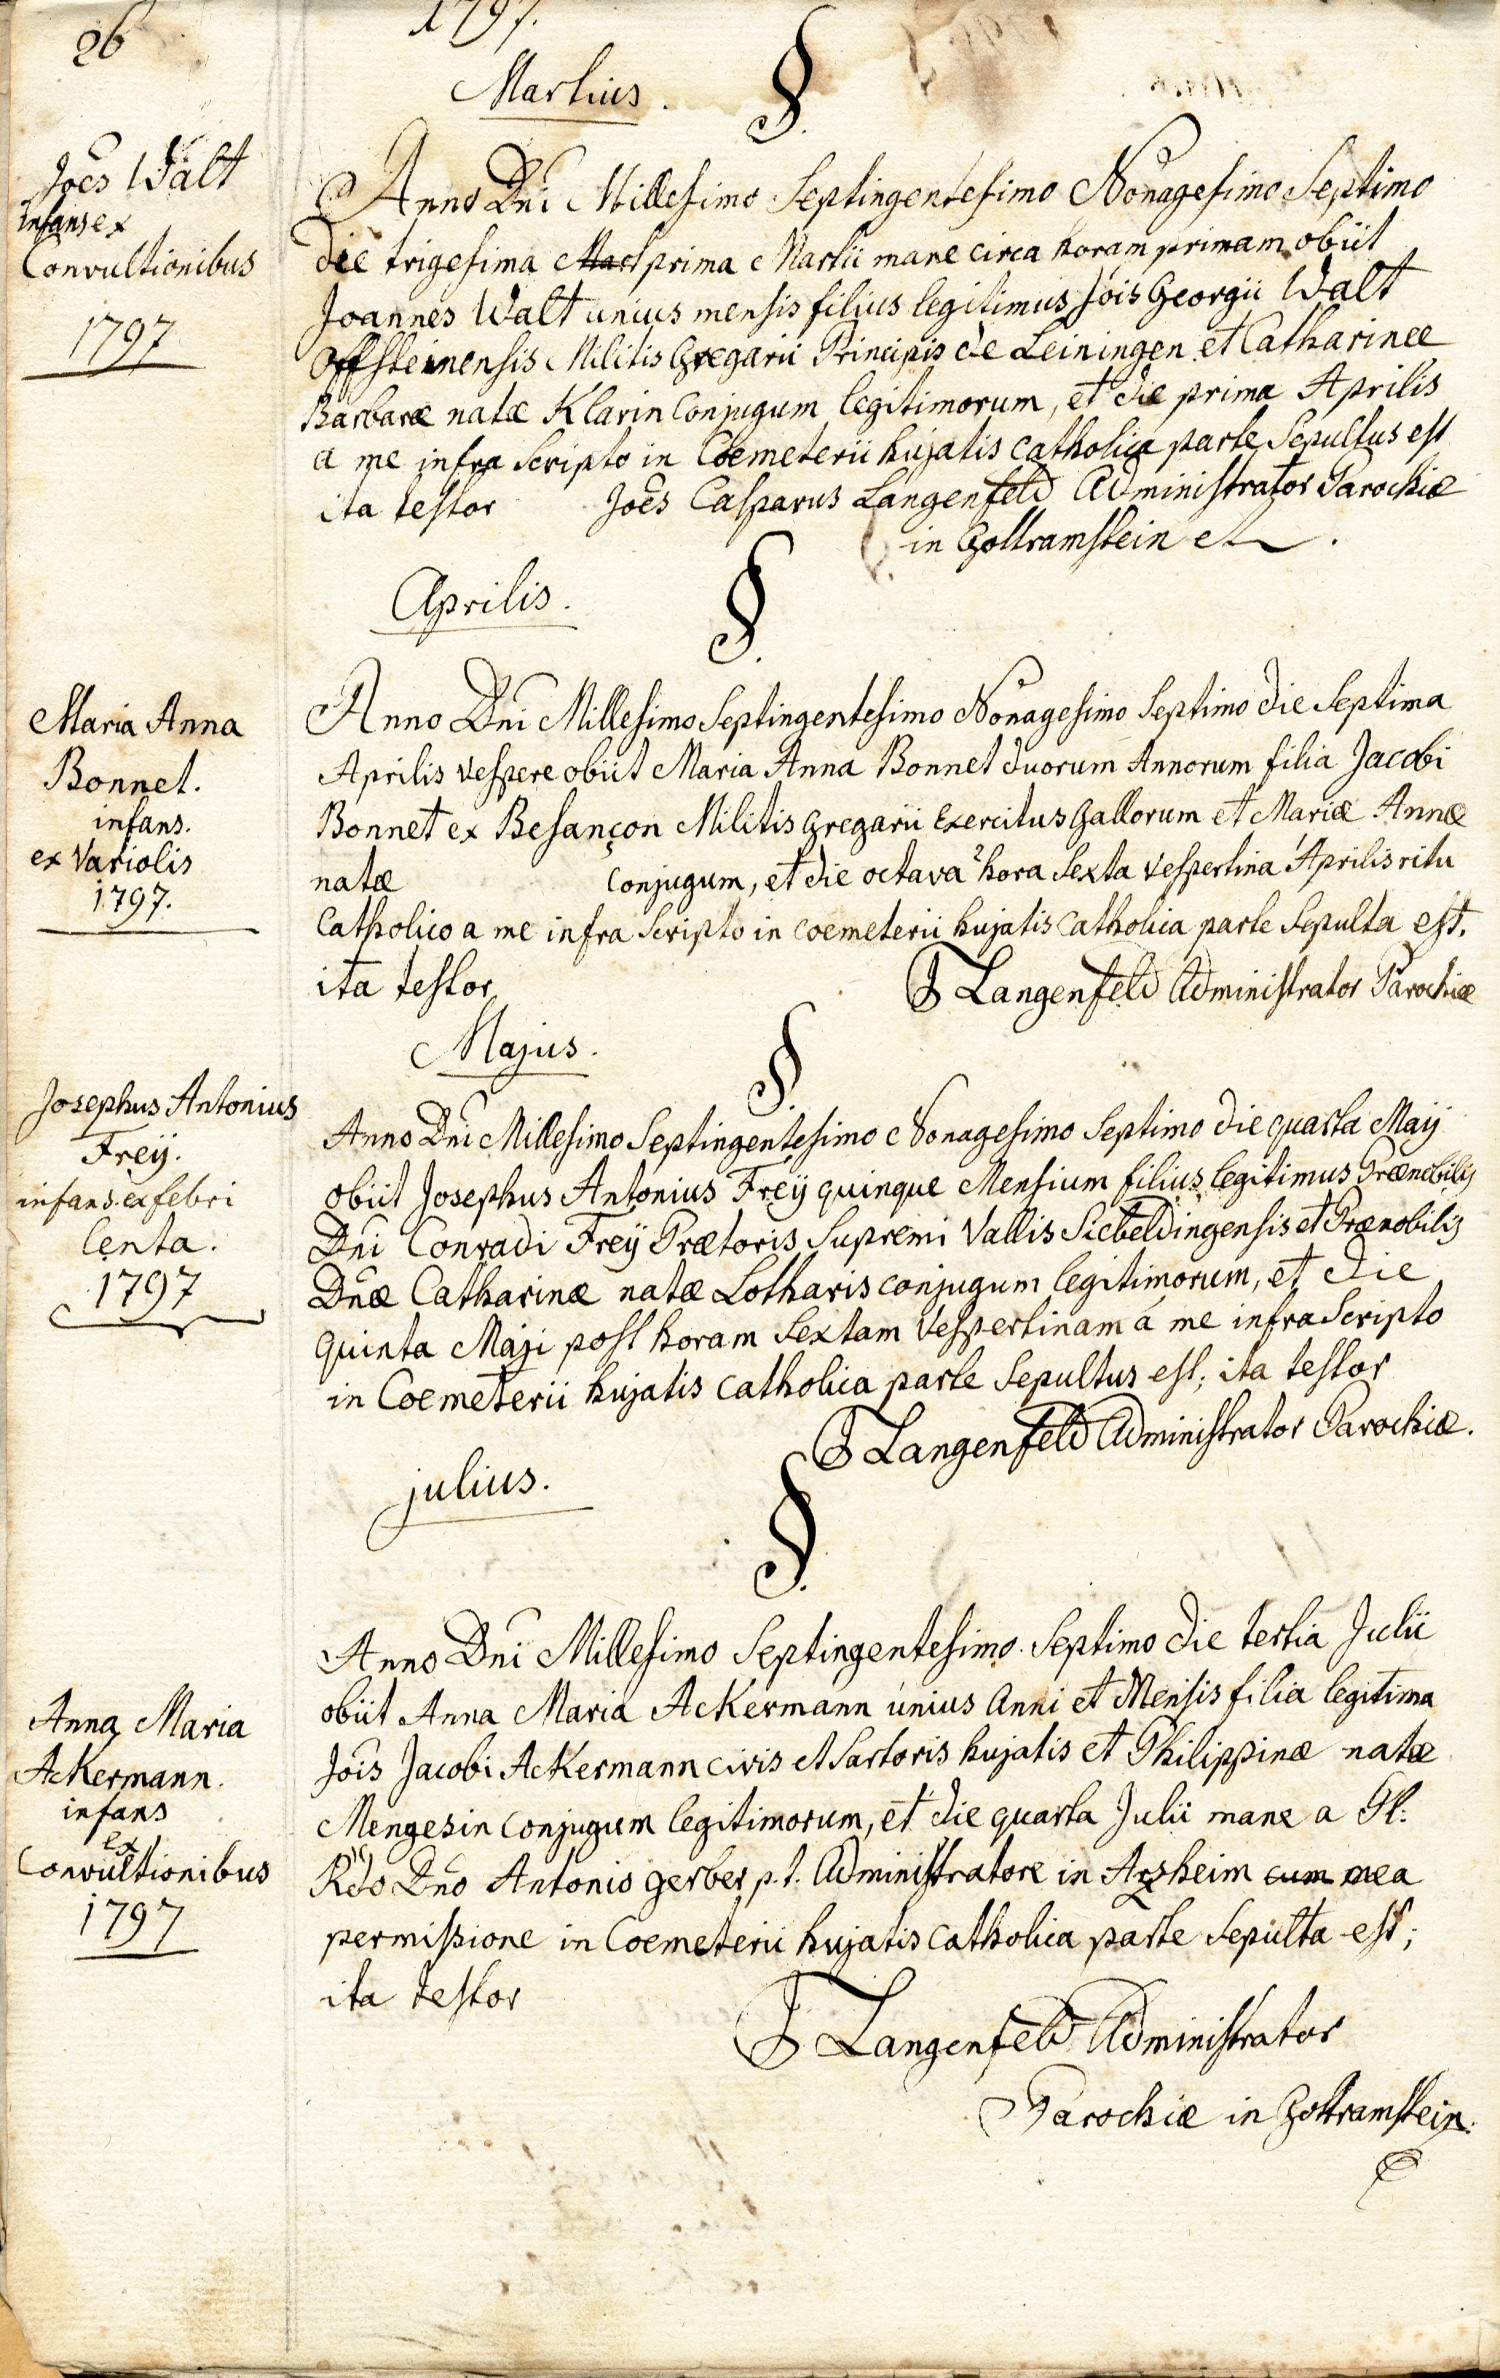 26
1797.
Martius.
§.
Joês Walt
infans ex
Convultionibus
1797
Anno Dni Millesimo Septingentesimo Nonagesimo Septimo
die trigesima Mart prima Martii mane circa horam primam obiit
Joannes Walt unius mensis filius legitimus Jois Georgii Walt
Offsteinensis Militis Gregarii Principis de Leiningen et Catharinee
Barbaræ natæ Klarin Conjugum legitimorum, et die prima Aprilis
a me infra Scripto in Coemeterii hujatis catholica parte Sepultus est
ita testor Joês Casparus Langenfeld Administrator Parochiæ
in Gottramstein
Aprilis.
§.
Maria Anna
Bonnet.
infans.
ex Variolis
1797.
Anno Dni Millesimo Septingentesimo Nonagesimo Septimo die Septima
Aprilis vespere obiit Maria Anna Bonnet duorum Annorum filia Jacobi
Bonnet ex Besançon Militis Gregarii Exercitus Gallorum et Mariæ Annæ
natæ Conjugum, et die octava 2 hora Sexta vespertina 1 Aprilis ritu
Catholico a me infra Scripto in coemeterii hujatis catholica parte Sepulta est.
ita testor J Langenfeld Administrator Parochiæ
Majus.
§.
Josephus Antonius
Freÿ.
infans. ex febri
lenta.
1797
Anno Dni Millesimo Septingentesimo Nonagesimo Septimo die quarta Maij
obiit Josephus Antonius Freÿ quinque Mensium filius legitimus Prænobilis
Dni Conradi Freÿ Prætoris Supremi Vallis Siebeldingensis et Prænobilis
Dnæ Catharinæ natæ Lotharis conjugum legitimorum, et die
quinta Maji post horam Sextam Vespertinam á me infra Scripto
in Coemeterii hujatis catholica parte Sepultus est; ita testor
J Langenfeld Administrator Parochiæ.
julius.
§.
Anna Maria
Ackermann.
infans
Ex
Convultionibus
1797
Anno Dni Millesimo Septingentesimo Septimo die tertia Julii
obiit Anna Maria Ackermann unius Anni et Mensis filia legitima
Jois Jacobi Ackermann civis et Sartoris hujatis et Philippinæ natæ
Mengesin Conjugum legitimorum, et die quarta Julii mane a Pl:
Rdo Dno Antonio gerber p.t. Administratore in Arzheim cum mea
permissione in Coemeterii hujatis catholica parte Sepulta est;
ita testor
J Langenfeld Administrator
Parochiæ in Gottramstein.